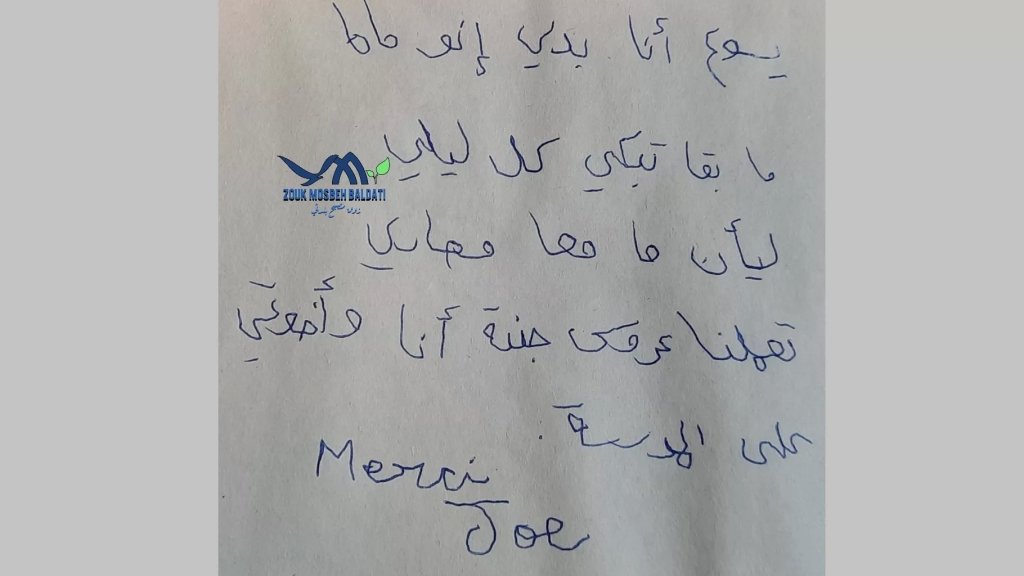 يسوع أنا بدي إنو ماما
ما بقا تبكي كل ليلي
ليأن ما معا مصاري
تعملنا عروس جبنة أنا وأخوتي
على المدرسة.
Merci
Joe
ZOUK MOSBEH BALDATI
ذوق مصبح بلدتي